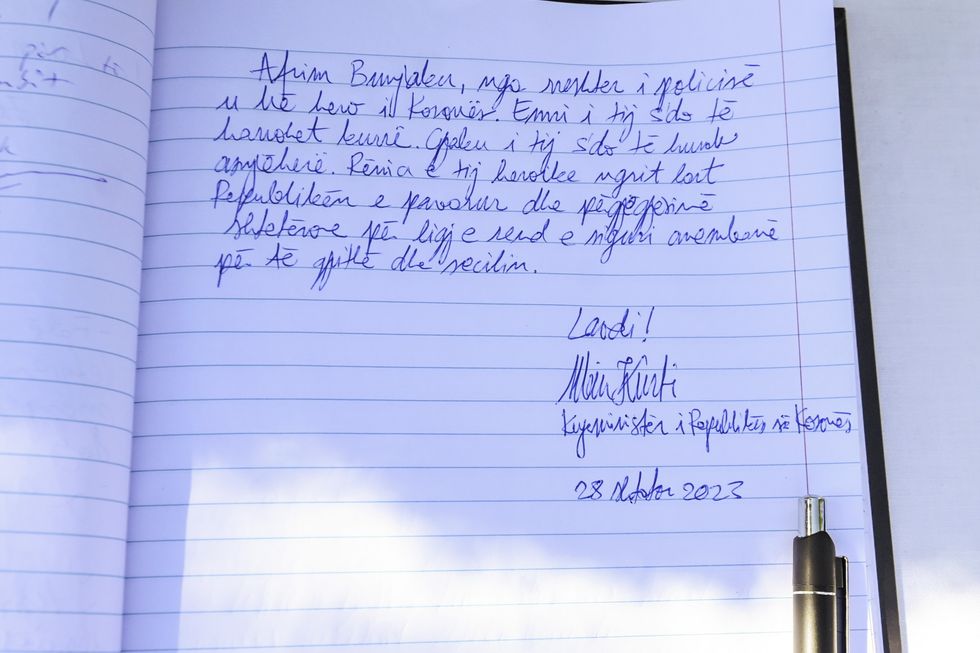 për të
Afrim Bunjaku, nga rreshter i policisë
u bë hero i Kosovës. Emri i tij s'do të
harrohet kurrë. Gjaku i tij s'do të humb
asnjëherë. Rënia e tij heroike ngrit lart
Republikën e pavarur dhe përgjegjësinë
shtetërore për ligj e rend e siguri anembanë
për të gjithë dhe secilin.
Lavdi!
Albin Kurti
Kryeministër i Republikës së Kosovës
28 shtator 2023